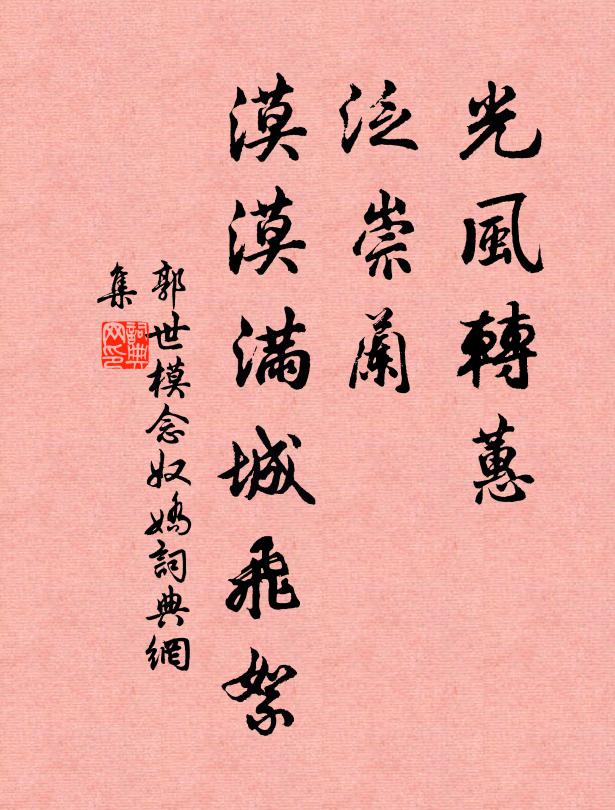 光風轉蕙
泛崇蘭
漠漠滿城飛絮
郭世模念奴嬌詞典網
集
詞典
网印